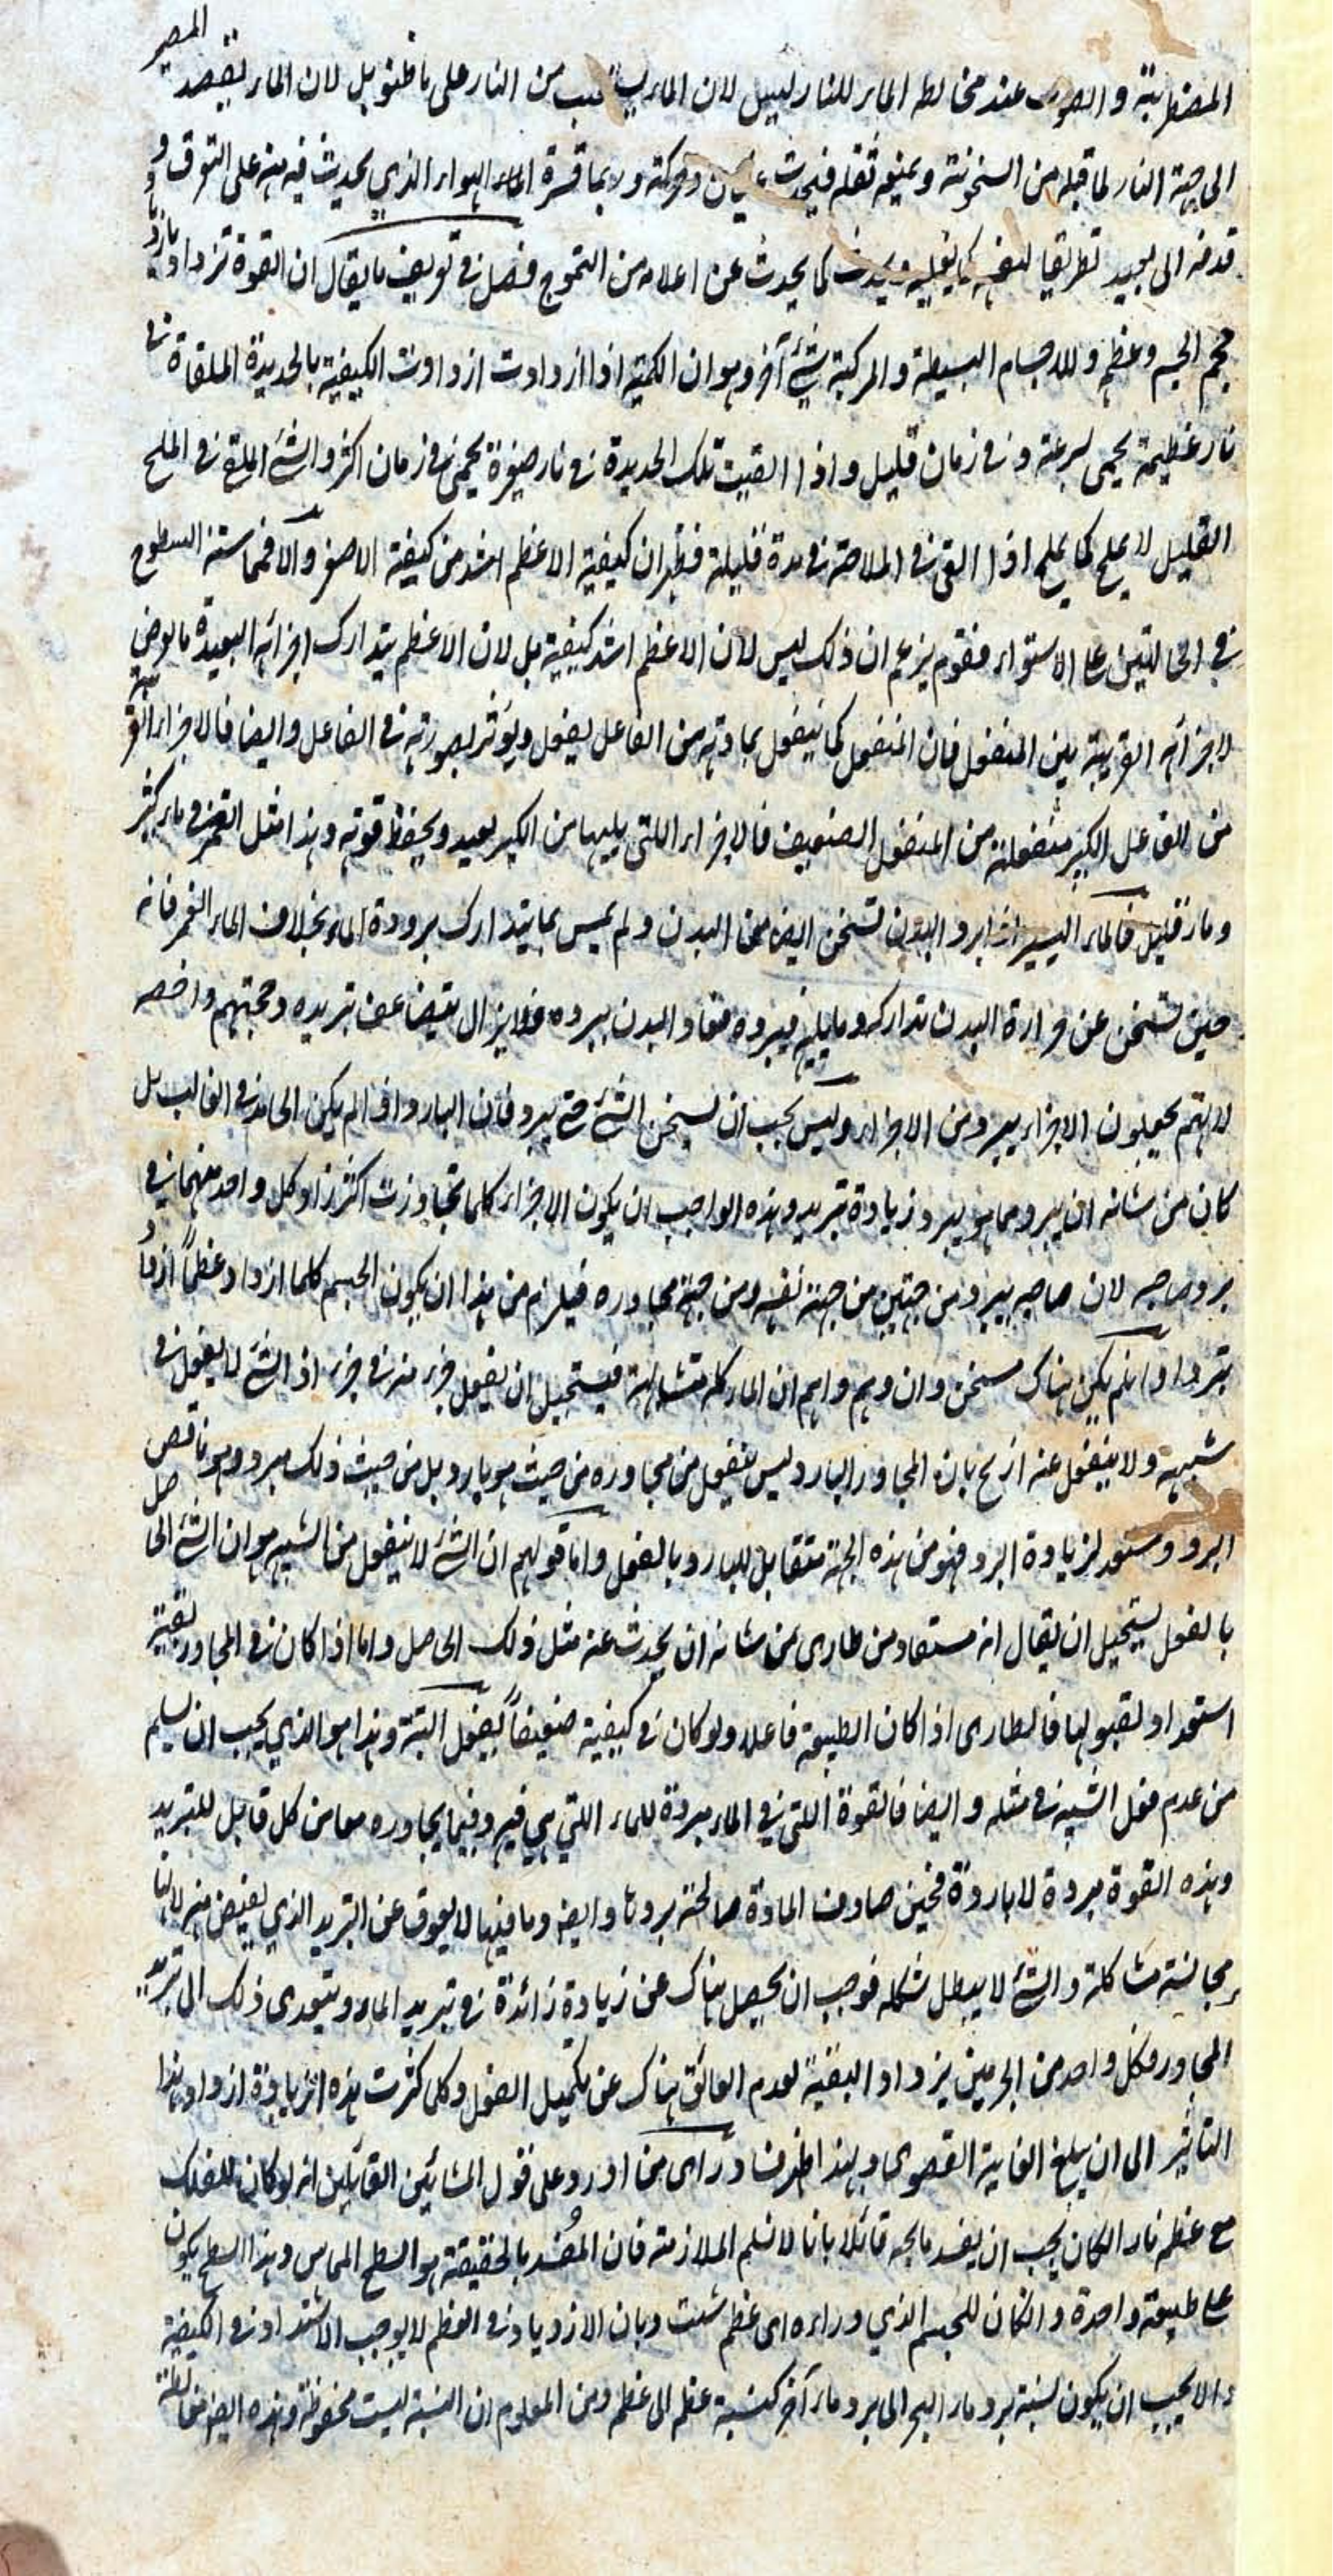 المصير
المضطربة والصوت عند مخالطه الماء للنار ليس لان الماء من النار على ما ظنوا بل لان الماء يقصد
الى جهة النار لما قبله من السخونة ويمنعه ثقله فيحدث غليان وحركته ولا بما قسره الماء الهواء الذي يحدث فيه منه على التفرق و
قذفه الى بعيد تطريقا لنفسه كما يغليه ويحدث كما يحدث عن اعلاه من التموج فصل في تعريف ما يقال ان القوة تزداد بازدياد
حجم الجسم وعظمه وللاجسام البسيطة والمركبة شيء آخر وهو ان الكمية اذا ازدادت ازدادت الكيفية بالحديدة الملقاة في
نار عظيمة يحمى بسرعة وفي زمان قليل واذا القيت تلك الحديدة في نار صغيرة يحمى في زمان اكثر والشئ الملقى في الملح
القليل لا يملح كما يملح اذا القى في الملاحة في مدة قليلة فظهر ان كيفية الاعظم اشد من كيفية الاصغر والا فمماسته السطوح
في الحالتين على الاستواء فقوم يزعم ان ذلك ليس لان الاعظم اشد كيفية بل لان الاعظم يتدارك اجزائه البعيدة ما يعرض
لاجزائه القريبة من المنفعل فان المنفعل كما ينفعل بمادته من الفاعل يفعل ويؤثر بصورته في الفاعل وايضا فالاجزاء القريبة
من الفاعل الكبير منفعلة من المنفعل الضعيف فالاجزاء اللتي يليها من الكبير يعيد ويحفظ قوته وهذا مثل في ماء كثير
وماء قليل فالماء اليسير اذا برد البدن تسخن ايضا من البدن ولم يمس بما يتدارك برودة الماء بخلاف الماء الغمر فانه
حين تسخن عن حرارة البدن تداركه وما يليه فيبرده فعاد البدن يبرده فلا يزال يتضاعف تبريده وحجتهم داحضه
لانهم يجعلون الاجزاء يبرد من الاجزاء وليس يجب ان يسخن الشئ حتى يبرد فان البارد اذا لم يكن الحامد في الغالب بل
كان من شانه ان يبرد مما هو يبرد زيادة تبريد وهذه الواجب ان يكون الاجزاء كلما تجاوزت اكثر زاد كل واحد منهما في
برد صاحبه لان صاحبه يبرد من جهتين من جهة نفسه ومن جهة مجاوره فيلزم من هذا ان يكون الجسم كلما ازداد عظما ازداد
تبردا وان لم يكن هناك مسخن وان وهم واهم ان الماء كله متشابهة فيستحيل ان يفعل جزء منه في جزء اذ الشئ لا يفعل في
شبيهه ولا ينفعل عنه ازيح بان المجاور البارد ليس ينفعل من مجاوره من حيث هو بارد بل من حيث ذلك مبرد وهو ناقص
البرد ومستعد لزيادة البرد فهو من هذه الجهة متقابل للبارد بالفعل واما قولهم ان الشئ لا ينفعل من الشبيه هو ان الشئ الحاصل
بالفعل يستحيل ان يقال انه مستفاد من طارى من شانه ان يحدث عنه مثل ذلك الحاصل واما اذا كان في المجاور بقية
استعداد لقبولها فالطارى اذا كان الطبيعة فاعلا ولو كان في كيفية ضعيفا يفعل البتة وهذا هو الذي يجب ان يسلم
من عدم فعل الشبيه في مثله وايضا فالقوة اللتي في الماء مبردة للماء اللتي هي فيه وفيما يجاوره معا من كل قابل للتبريد
وهذه القوة مبردة لا باردة فحين صادف المادة صالحة بردها وايضا وما فيها لا يعوق عن التبريد الذي يفيض منه لانها
مجانسة مشاكلة والشئ لا يبطل شكله فوجب ان يحصل هناك عن زيادة زائدة في تبريد الماء ويتعدى ذلك الى تبريد
المجاور فكل واحد من الجرمين يزداد البقية لعدم العائق هناك عن تكميل الفعل وكلما كثرت هذه الزيادة ازداد هذا
التاثير الى ان يبلغ الغاية القصوى وبهذا اطرف من اورد على قول المشائين القائلين انه لو كان للفلك
مع عظمه نارا لكان يجب ان يفسد ما يجه قائلا بانا لا نسلم الملازمة فان المفسد بالحقيقة هو السطح المماس وهذا السطح يكون
على طبيعة واحدة وان كان للجسم الذي وراءه اى عظم شئت وبان الازدياد في العظم لا يوجب الاشتداد في الكيفية
والا يجب ان يكون نسبة برد ماء البحر الى برد ماء آخر كنسبة عظمه الى عظمه ومن المعلوم ان النسبة ليست محفوظة وهذه ايضا مغالطة